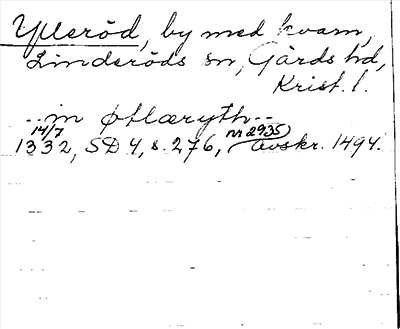 Ylleröd, by med kvarn,
Linderöds sn, Gärds hd,
Krist. l.
..in øtlæryth..
14/7 nr 2935
1332, SD 4, s. 276, avskr. 1494.